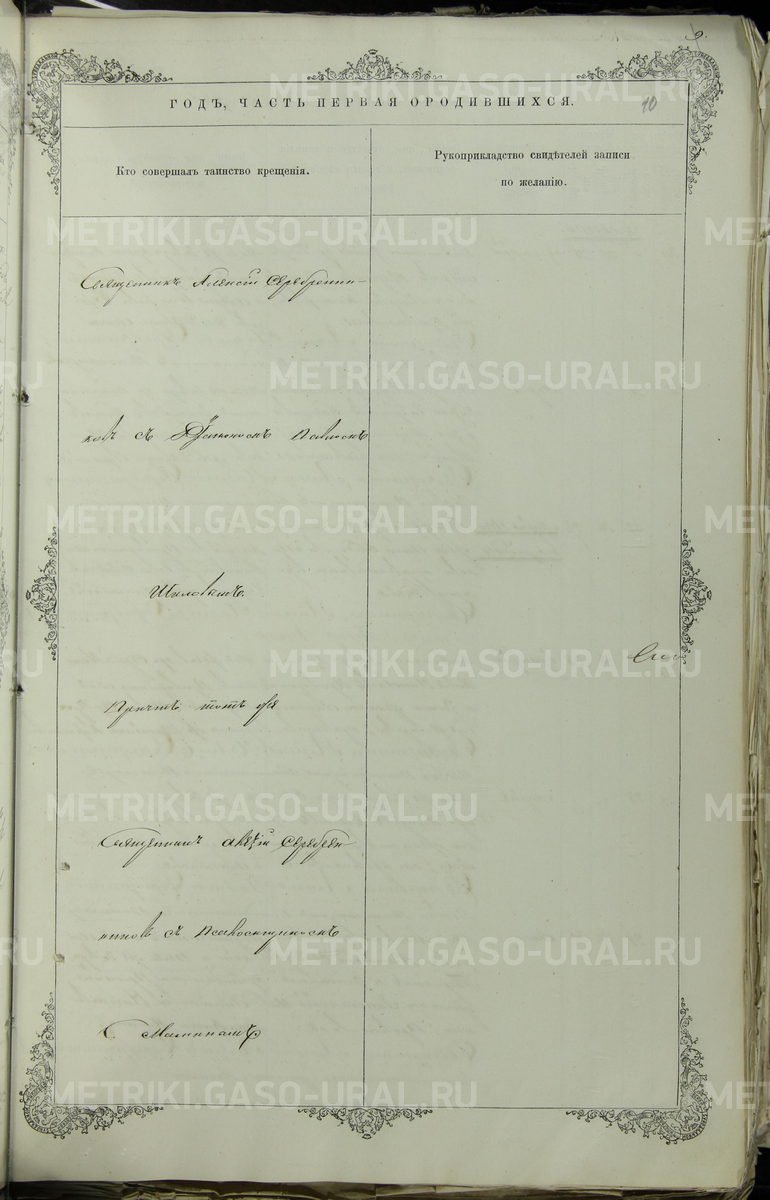 9
10
ГОДЪ, ЧАСТЬ ПЕРВАЯ О РОДИВШИХСЯ.
Кто совершалъ таинство крещенія.
Рукоприкладство свидѣтелей записи
по желанію.
Священникъ Алексій Серебренни-
ковъ съ Дiакономъ Павломъ
Шиловымъ.
Причтъ тотъ же
Священникъ Алексій Серебрен-
никовъ съ Псаломщикомъ
С. Мамннамъ
METRIKI.GASO-URAL.RU